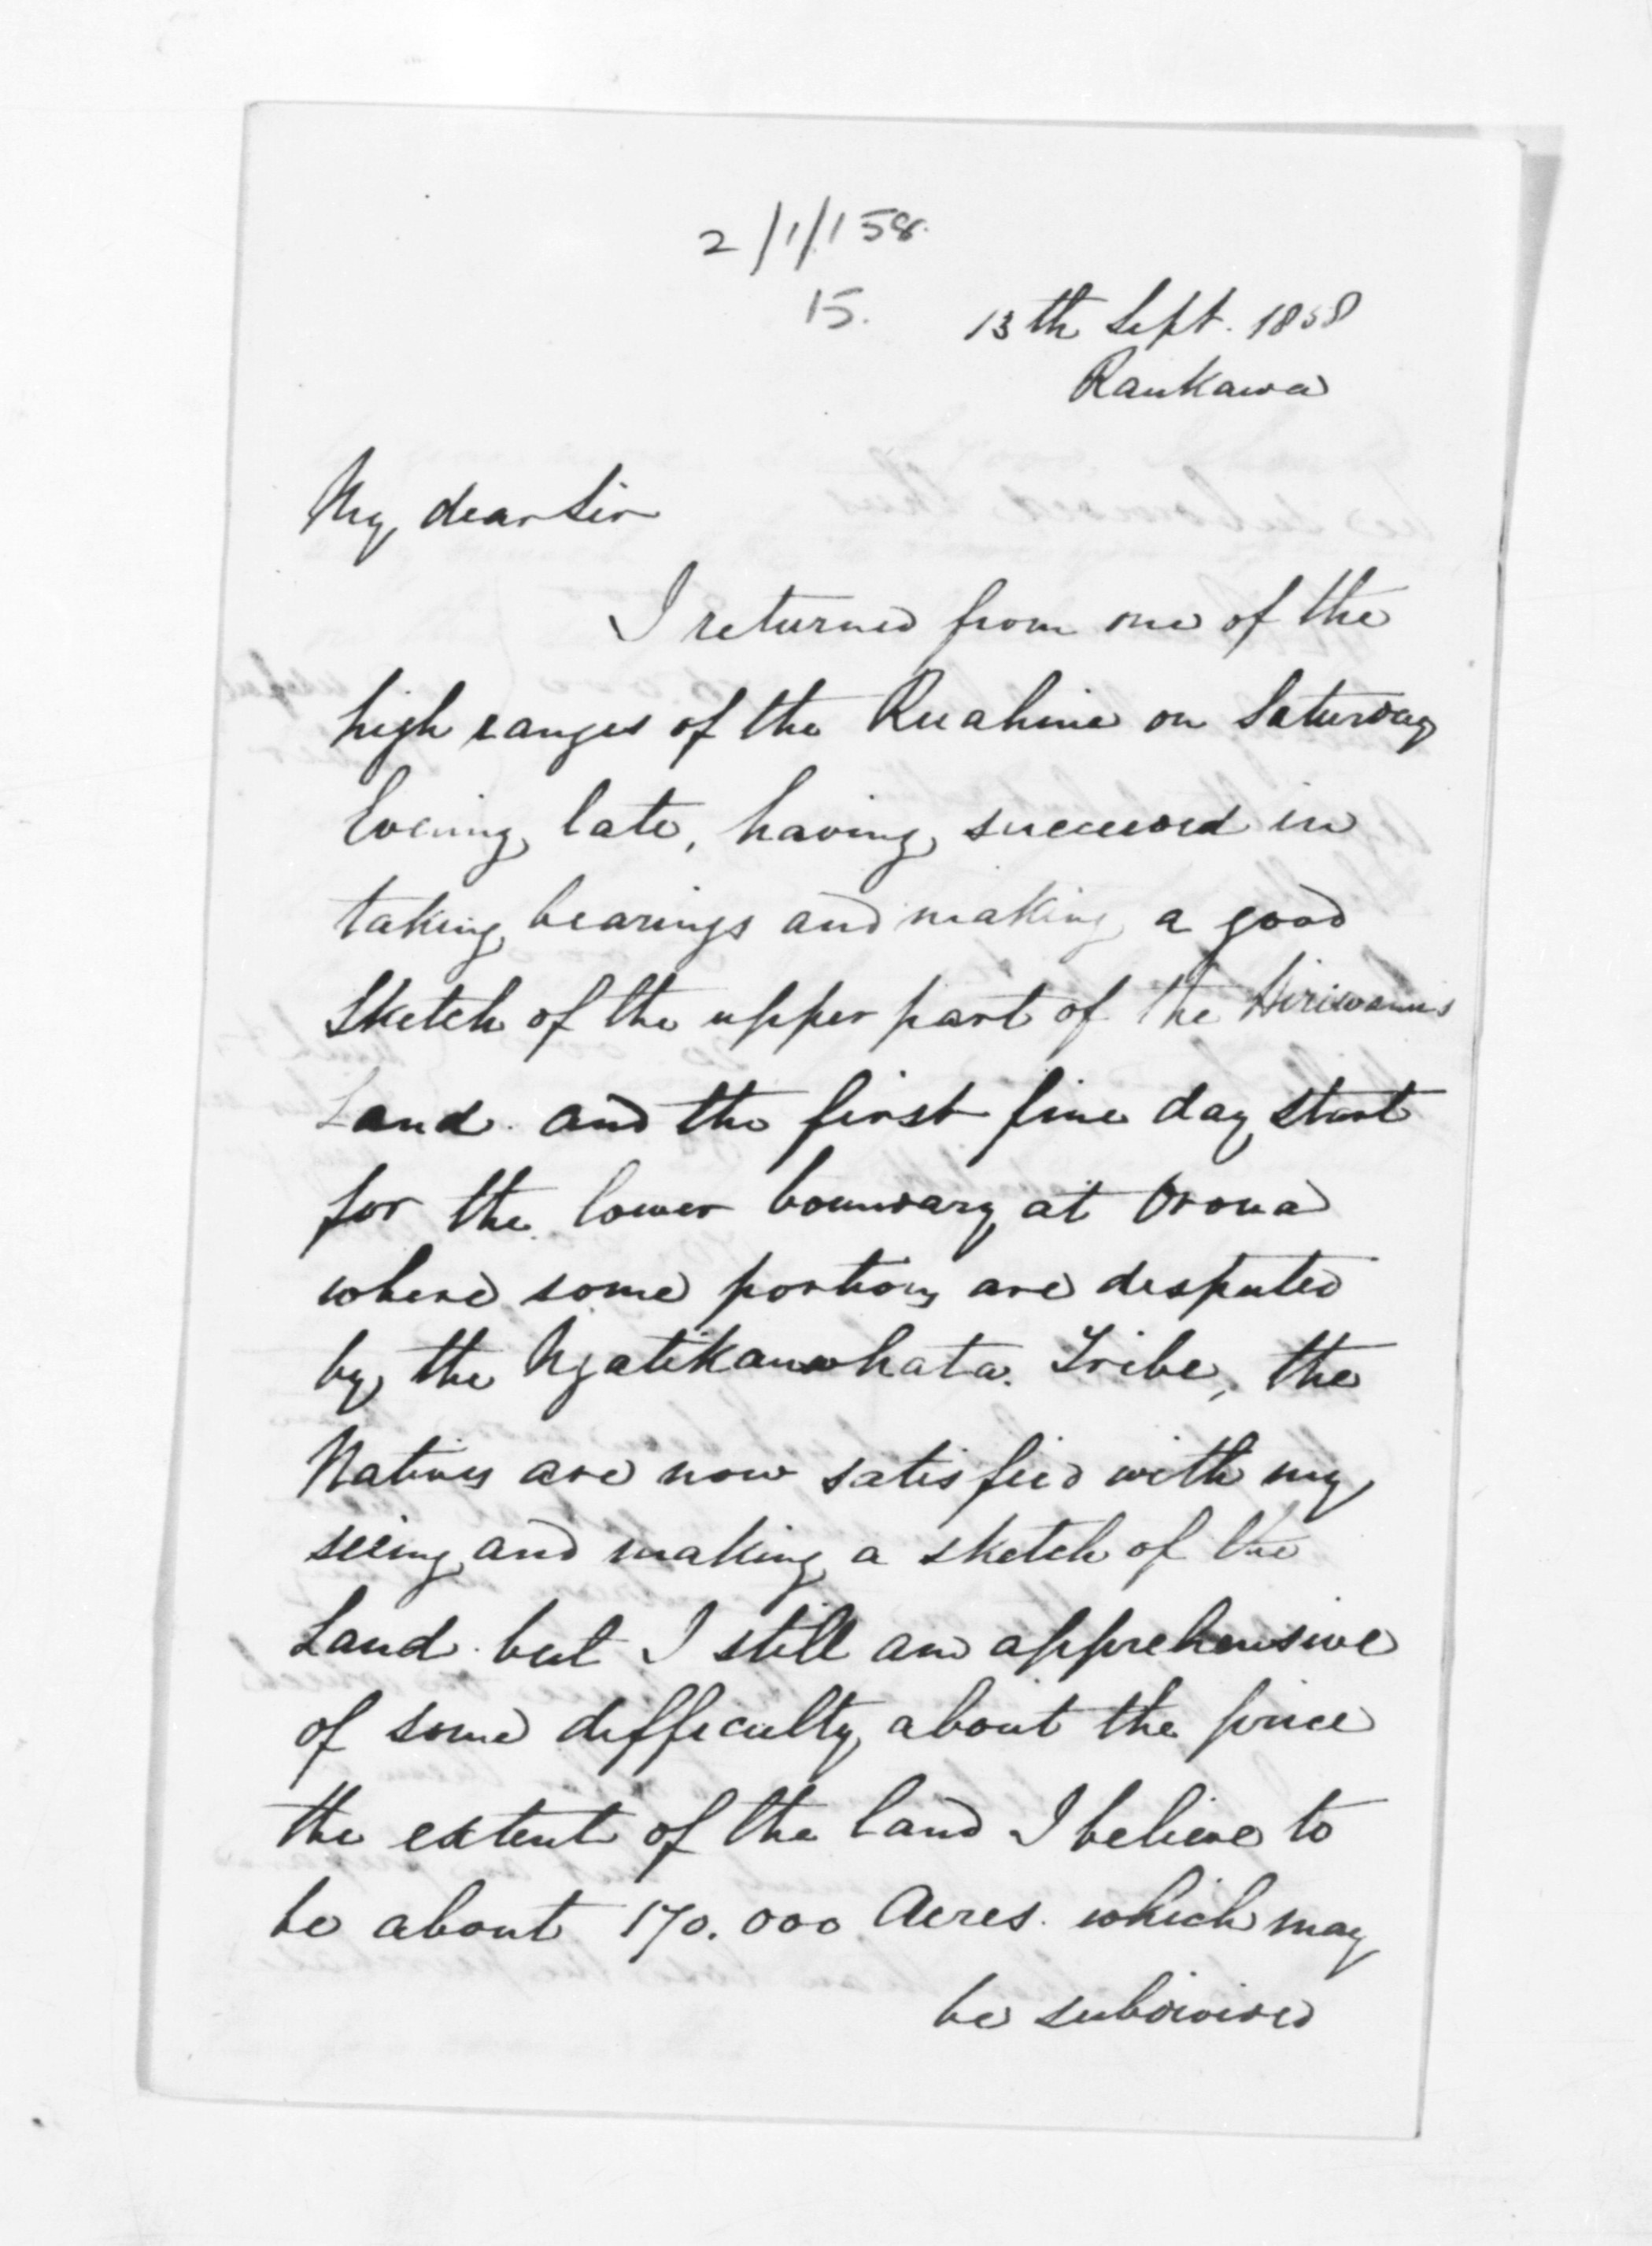 2/1/158.
15.
13th Sept. 1858
Raukawa
My dear Sir
I returned from one of the
high ranges of the Ruahine on Saturday
Evening late, having succeeded in
taking bearings and making a good
Sketch of the upper part of the Hiriwanus
Land. and the first fine day start
for the lower boundary at Oroua
where some portions are desputed
by the Ngatikauwhata. Tribe, the
Natives are now satisfied with my
seeing and making a sketch of the
Land. but I still am apprehensive
of some difficulty about the price
the extent of the land I believe to
be about 170.000 Acres. which may
be subdivided